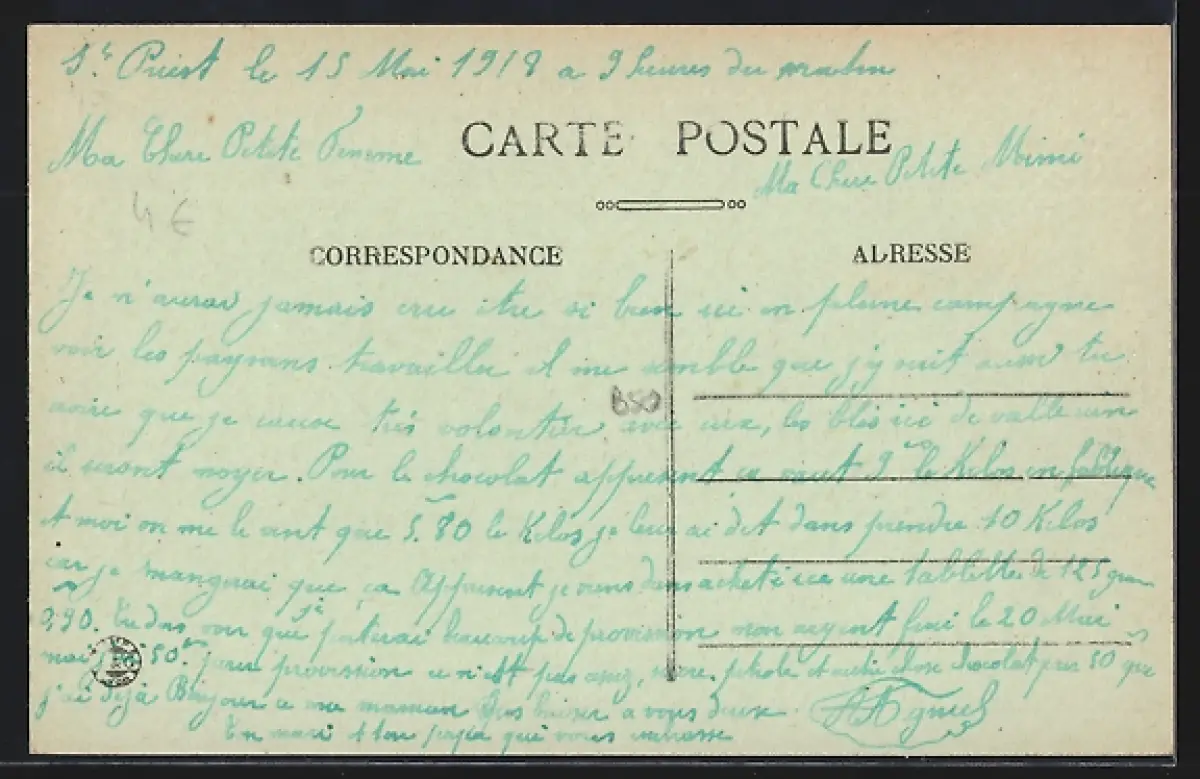 St Priest le 15 Mai 1918 a 9 heures du matin
CARTE POSTALE
Ma Chere Petite Femme
Ma Chere Petite Mimi
4 €
CORRESPONDANCE
ADRESSE
Je n'aurai jamais cru être si bien ici en pleine campagne
voir les paysans travailler il me semble que j'y suit aussi tu
voire que je cause très volontier avec eux, les blés ici de
B50
il seront noyer. Pour le chocolat appresent ça vaut 9 le Kilos en fabrique
et moi on me le vent que 5.80 le Kilos je leur ai dit dans prendre 10 Kilos
car je mangerai que ça Appresent je viens dans acheté ici une tablette de 125 gram
0,90. Tu dois voir que je ferai beaucoup de provision mon argent fini le 20 Mai
mai j'ai 50 pour provission ce n'est pas assez, sucre, petrole et autre chose chocolat pour 50 que
j'ai déjà Bonjour a ma maman Gros baiser a vous deux
Ton mari et ton papa qui vous embrasse